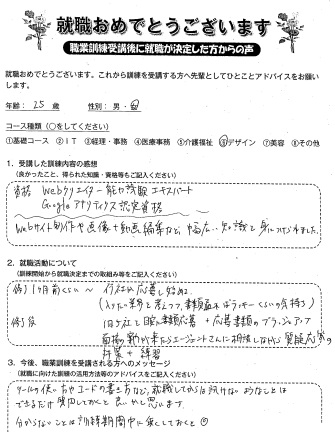 就職おめでとうございます
職業訓練受講後に就職が決定した方からの声
就職おめでとうございます。これから訓練を受講する方へ先輩としてひとことアドバイスをお願い
します。
年齢： 25 歳 性別： 男・女
コース種類（○をしてください）
①基礎コース ②IT ③経理・事務 ④医療事務 ⑤介護福祉 ⑥デザイン ⑦美容 ⑧その他
1．受講した訓練内容の感想
（良かったこと、得られた知識・資格等もご記入ください）
資格 Webクリエイター能力認定試験 エキスパート
Google アナリティクス認定資格
Webサイト制作や画像・動画編集など、幅広い知識を身につけられました。
2．就職活動について
（訓練開始から就職決定までの取組み等をご記入ください）
修了1ヶ月前くらい ～ 何社か応募し始める
修了後 1日1社を目安に書類応募 + 応募書類のブラッシュアップ
面接の動きを エージェントさんに相談しながら 質疑応答の
対策 + 練習
3．今後、職業訓練を受講される方へのメッセージ
（就職に向けた訓練の活用方法等のアドバイスをご記入ください）
ツールの使い方やコードの書き方など、就職してからは訊けないようなことは
できるだけ質問しておくと良いかと思います。
分からないことは訓練期間中に無くしておくと◎